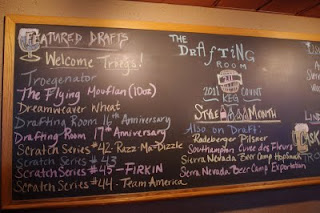 FEATURED DRAFTS
Welcome Troegs!
Troegenator
The Flying Mouflan (10oz)
Dreamweaver Wheat
Drafting Room 16th Anniversary
Drafting Room 17th Anniversary
Scratch Series #42 - Razz-Ma-Dizzle
Scratch Series #43
Scratch Series #45 - FIRKIN
Scratch Series #44 - Team America
THE
DRAFTING
ROOM
2011
KEG COUNT
STYLE MONTH
Also on Draft:
Radeberger Pilsner
Southampton Cuvee des Fleurs
Sierra Nevada Beer Camp Hopsmack
Sierra Nevada Beer Camp Exportation
CASK